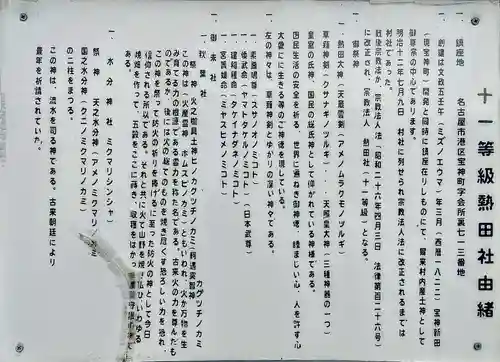 十一等級熱田社由緒
一、鎮座地　名古屋市港区宝神町字会所裏七一三番地
一、創建は文政五壬午（ミズノエウマ）年三月（西暦一八二二）宝神新田
（現宝神町）開発と同時に鎮座在りしものにて、爾来村内産土神として
御尊崇の中心であります。
明治十二年七月九日　村社に列せられ宗教法人法に改正されるまでは
村社であった。
戦後宗教法か、宗教法人法（昭和二十六年四月三日　法律第百二十六号）
に改正され、宗教法人　熱田社（十一等級）となる。
一、御祭神
熱田大神（天叢雲剣（アメノムラクモノツルギ）
草薙神剣（クサナギノツルギ）　天照皇大神（三種神器の一つ）
皇室の氏神、国民の総氏神として仰がれている神様である。
四民生活の安楽を祈る、世界に遍ねき御神徳、睦まじい心、人を許す心
大愛心に生きる等のご神徳を現している。
左の神々は、草薙神剣とゆかりの深い神々である。
一、素盞嗚尊（スサノオノミコト）
一、倭武命（ヤマトタケルノミコト）（日本武尊）
一、建稲種命（タケイナダネノミコト）
一、宮簀媛命（ミヤスヒメノミコト）
一、御末社
一、秋葉社
カゲツチノカミ
祭神　火之迦具土神ヒノカグツチノカミ（軻遇突智神
この神は（火産霊神　ホムスビノカミ）ともいわれ、火か万物を生
み育てる力の根源である霊力を称た名である。古来火の力を尊んだも
のであるが、後には火の総てのものを焼き尽くす恐ろしい力を恐れ、
この神を祭って火の祈りを捧げるに至った防火の神として今日
信仰される所以である。それと共に火で山野を焼き払
焼畑を作って、五穀をここに蒔き、収穫をはかっ
一、水分神社　ミクマリジンシャ）
祭神　天之水分神（アメノミクマリノ
国之水分神（クニノミクマリノカミ）
の二柱をまつる。
この神は、流水を司る神である。古来朝廷により
豊年を祈請されていた。